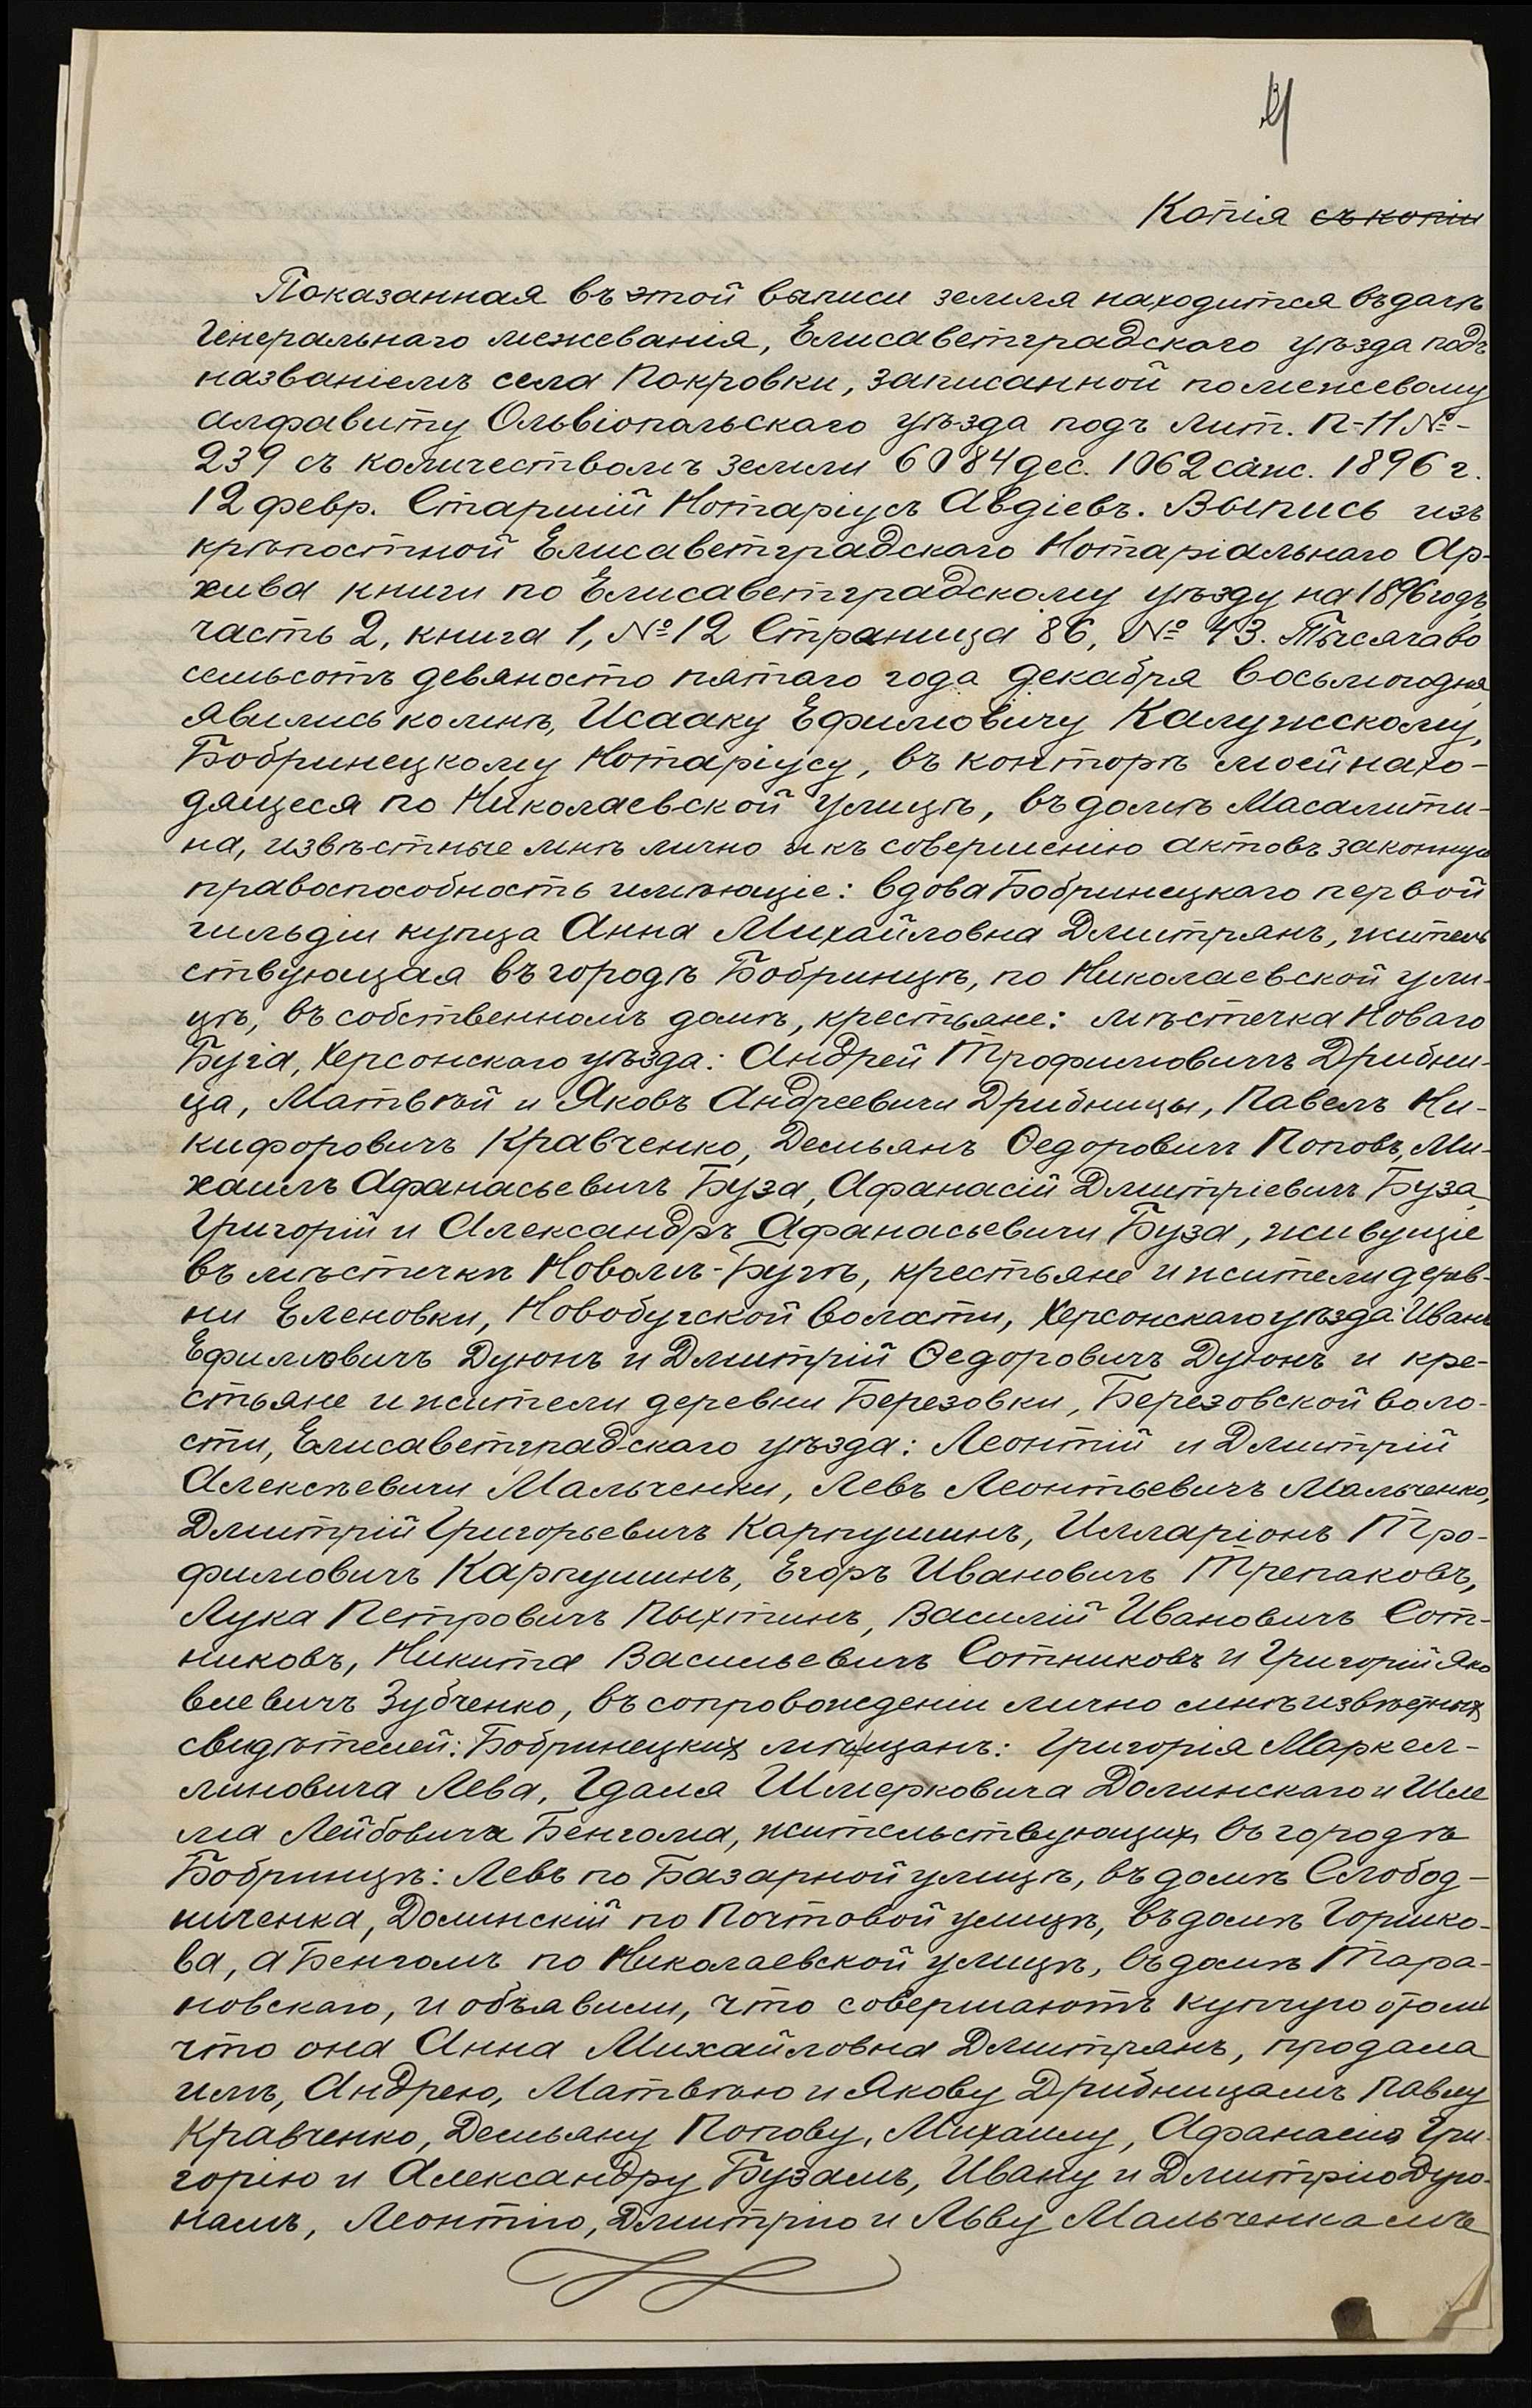 Копія съ копіи
Показанная въ этой выписи земля находится въ дачѣ
Генеральнаго межеванія, Елисаветградскаго уѣзда подъ
названіемъ села Покровки, записанной по межевому
алфавиту Ольвіопольскаго уѣзда подъ Лит. П-11 №-
239 съ количествомъ земли 6084 дес. 1062 саж. 1896 г.
12 февр. Старшій Нотаріусъ Авдіевъ. Выпись изъ
крѣпостной Елисаветградскаго Нотаріальнаго Ар-
хива книги по Елисаветградскому уѣзду на 1896 годъ,
часть 2, книга 1, № 12 Страница 86, № 43. Тысяча во
семьсотъ девяносто пятаго года декабря восьмого дня
явились ко мнѣ, Исааку Ефимовичу Калужскому,
Бобринецкому Нотаріусу, въ конторѣ моей нахо-
дящеся по Николаевской улицѣ, въ домѣ Масалити-
на, извѣстные мнѣ лично и къ совершенію актовъ законную
правоспособность имѣющіе: вдова Бобринецкаго первой
гильдіи купца Анна Михайловна Дмитрянъ, житель
ствующая въ городѣ Бобринцѣ, по Николаевской ули-
цѣ, въ собственномъ домѣ, крестьяне: мѣстечка Новаго
Буга, Херсонскаго уѣзда: Андрей Трофимовичъ Дрибни-
ца, Матвѣй и Яковъ Андреевичи Дрибницы, Павелъ Ни-
кифоровичъ Кравченко, Демьянъ Ѳедоровичъ Поповъ, Ми-
хаилъ Афанасьевичъ Буза, Афанасій Дмитріевичъ Буза,
Григорій и Александръ Афанасьевичи Буза, живущіе
въ мѣстечкѣ Новомъ-Бугѣ, крестьяне и жители дерев-
ни Еленовки, Новобугской волости, Херсонскаго уѣзда: Иванъ
Ефимовичъ Дуюнъ и Дмитрій Ѳедоровичъ Дуюнъ и кре-
стьяне и жители деревни Березовки, Березовской воло-
сти, Елисаветградскаго уѣзда: Леонтій и Дмитрій
Алексѣевичи Мальченки, Левъ Леонтьевичъ Мальченко,
Дмитрій Григорьевичъ Карпушинъ, Илларіонъ Тро-
фимовичъ Карпушинъ, Егоръ Ивановичъ Трепаковъ,
Лука Петровичъ Пыхтинъ, Василій Ивановичъ Сот-
никовъ, Никита Васильевичъ Сотниковъ и Григорій Яко
влевичъ Зубченко, въ сопровожденіи лично мнѣ извѣстныхъ
свидѣтелей: Бобринецкихъ мѣщанъ: Григорія Маркел-
линовича Лева, Гдаля Шмерковича Долинскаго и Шле
ма Лейбовича Бенгома, жительствующихъ въ городѣ
Бобринцѣ: Левъ по Базарной улицѣ, въ домѣ Слобод-
ниченка, Долинскій по Почтовой улицѣ, въ домѣ Горшко-
ва, а Бенгомъ по Николаевской улицѣ, въ домѣ Тара-
новскаго, и объявили, что совершаютъ купчую о томъ
что она Анна Михайловна Дмитрянъ, продала
имъ, Андрею, Матвѣю и Якову Дрибницамъ Павлу
Кравченко, Демьяну Попову, Михаилу, Афанасію Гри-
горію и Александру Бузамъ, Ивану и Дмитрію Дую-
намъ, Леонтію, Дмитрію и Льву Мальченкамъ